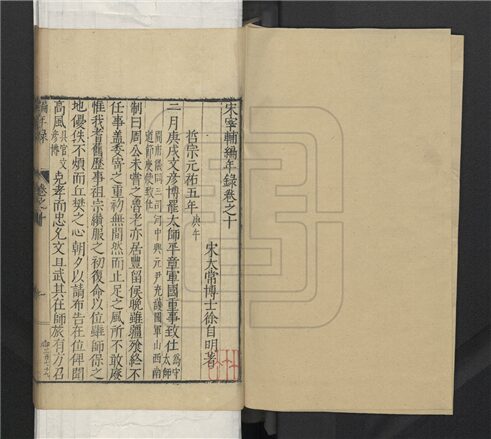 宋宰輔編年錄卷之十
宋太常博士徐自明著
哲宗元祐五年庚午
二月庚戌文彥博罷太師平章軍國重事致仕為守太師
開府儀同三司河中興元尹充護國軍山西南道節度使致仕
制曰周公未嘗之魯老亦居豐留侯晚雖彊飧終不
任事蓋委寄之重初無間然而止足之風所不敢廢
惟我耆舊歷事祖宗纘服之初復命以位雖師保之
地優佚不煩而丘樊之心朝夕以請布告在位俾聞
高風具官文彥博克孝而忠允文且武其在師旅有方召
編年錄
卷之十
一